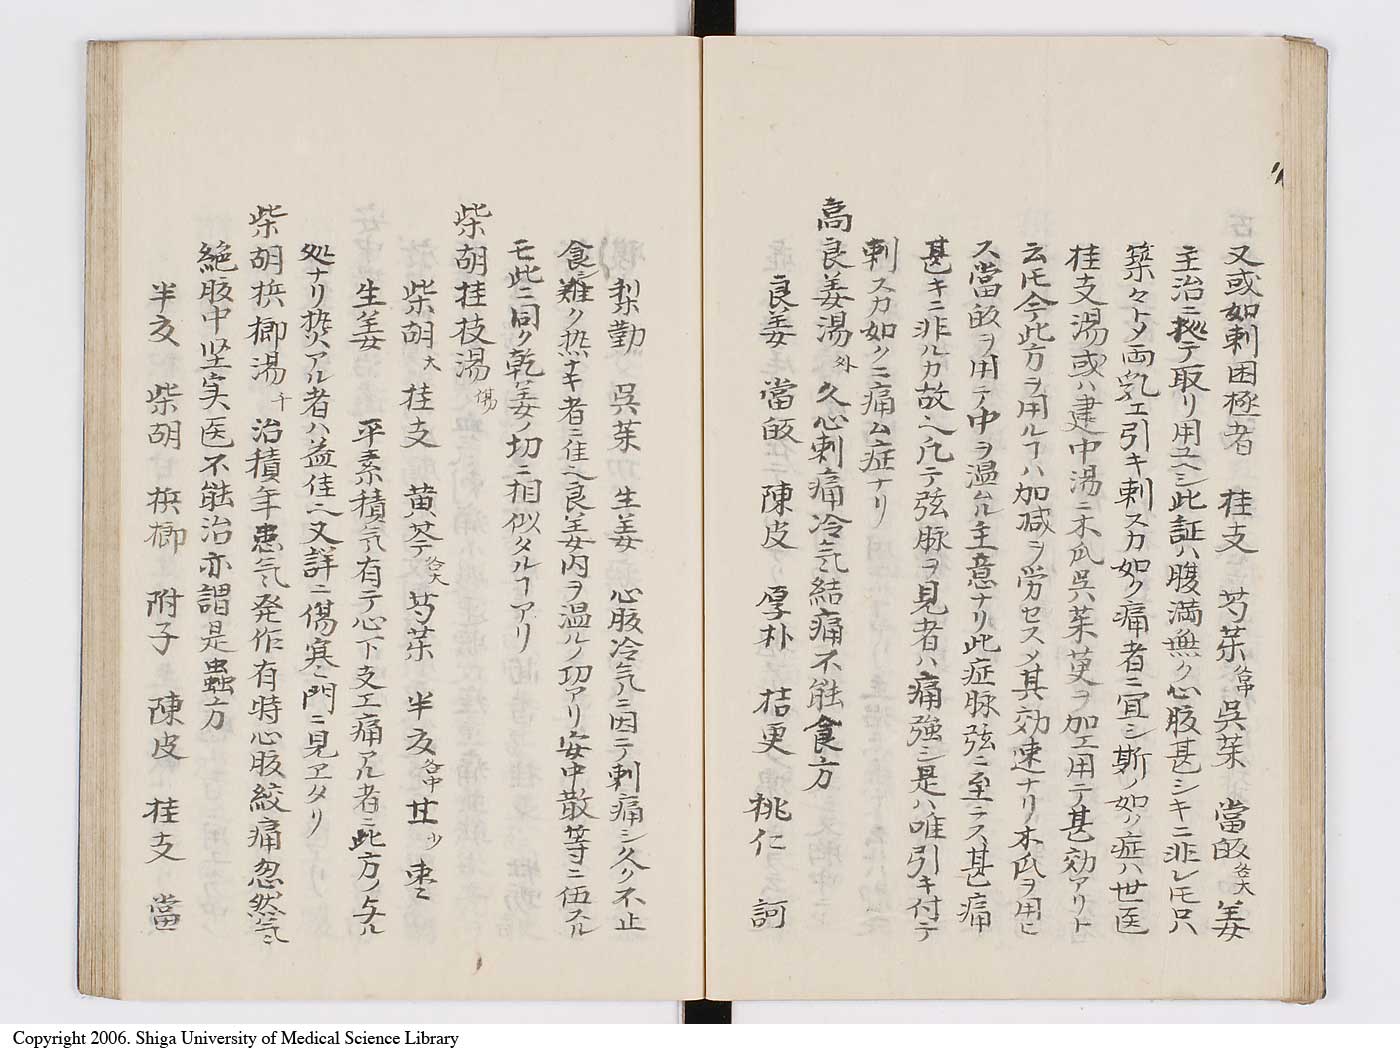 又或如刺困極者 桂支 芍茱各中 呉茱 當皈各大 姜
主治ニ拠テ取リ用ユヘシ此証ハ腹満無ク心腹甚シキニ非レモ只
築々トメ両乳エ引キ刺スカ如ク痛者ニ宜シ斯ノ如ハ症ハ世医
桂支湯或ハ建中湯ニ木瓜呉茱萸ヲ加エ用テ甚効アリト
云モ今此方ヲ用ルヿハ加减ヲ労セスメ其効速ナリ木瓜ヲ用ヒ
ス當皈ヲ用テ中ヲ温ムル主意ナリ此症脉弦ニ至ラス甚痛
甚キニ非ルカ故之凡テ弦脉ヲ見者ハ痛強シ是ハ唯引キ付テ
刺スカ如クニ痛ム症ナリ
高良姜湯 外 久心刺痛冷気結痛不能食方
良姜 當皈 陳皮 厚朴 桔更 桃仁 訶
梨勒 呉茱 生姜 心腹冷気ニ因テ刺痛シ久ク不止
食難ク熱ナキ者ニ佳之良姜内ヲ温ルノ功アリ安中散等ニ伍スル
モ此ニ同ク乾姜ノ切ニ相似タルヿアリ
柴胡桂枝湯 傷
柴胡大 桂支 黄芩各大 芍茱 半夜各中 甘少 棗
生姜 平素積気有テ心下支エ痛アル者ニ此方ノ与ル
処ナリ热アル者ハ益佳之又詳ニ傷寒ニ門ニ見ヱタリ
柴胡梹榔湯 千 治積年患気発作有時心腹絞痛忽然気
絶腹中坚实医不能治亦謂是蟲方
半夜 柴胡 梹榔 附子 陳皮 桂支 當
Copyright 2006. Shiga University of Medical Science Library